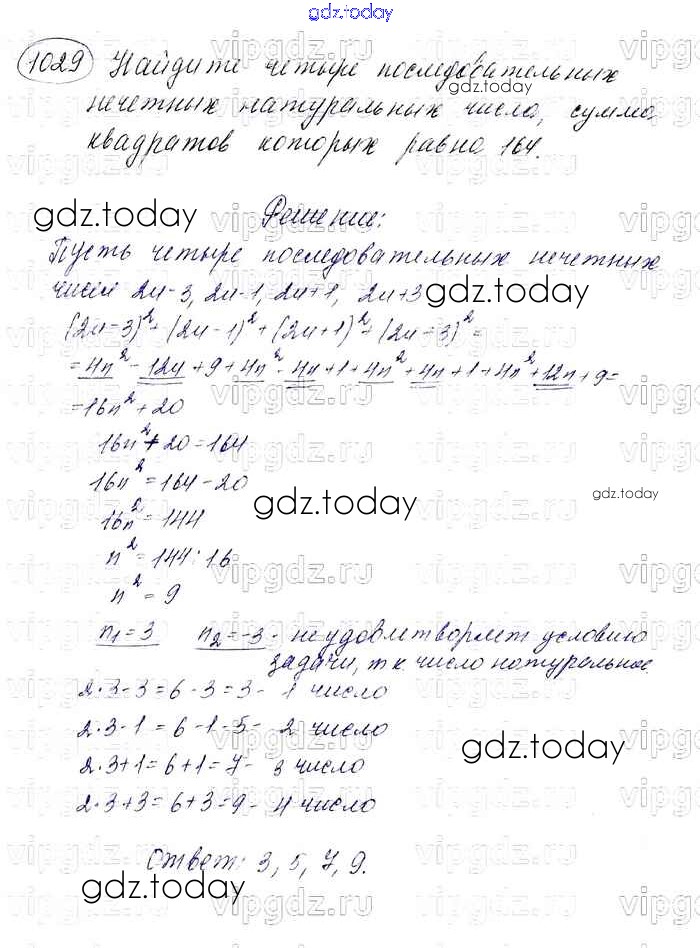 gdz.today
1029 Найдите четыре последовательных
нечетных натуральных числа, сумма
квадратов которых равна 164.
Решение:
Пусть четыре последовательных нечетных
чисел 2n-3, 2n-1, 2n+1, 2n+3
(2n-3)²+(2n-1)²+(2n+1)²+(2n+3)²=
=4n²-12n+9+4n²-4n+1+4n²+4n+1+4n²+12n+9=
=16n²+20
16n²+20=164
16n²=164-20
16n²=144
n²=144:16
n²=9
n₁=3 n₂=-3 - не удовлетворяет условию
задачи, т к число натуральное.
2·3-3=6-3=3- 1 число
2·3-1=6-1=5- 2 число
2·3+1=6+1=7- 3 число
2·3+3=6+3=9- 4 число
Ответ: 3, 5, 7, 9.
gdz.today
gdz.today
gdz.today
gdz.today
gdz.today
gdz.today
gdz.today
vipgdz.ru